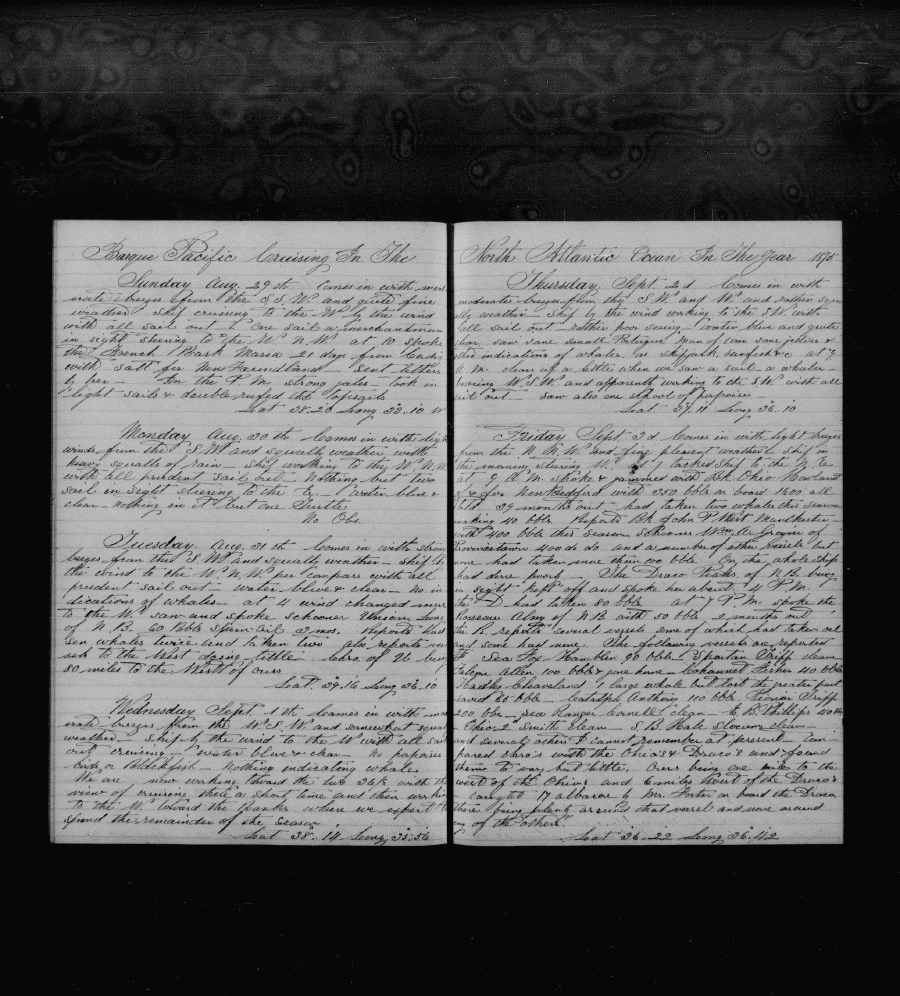 Barque Pacific Cruising In The
Sunday Aug. 29th Comes in with mod
erate breezes from the S.S.W. and quite fine
weather ship cruising to the W by the wind
with all sail out one sail a merchantman
in sight steering to the W.N.W. at 10 spoke
the French Bark Maria 21 days from Cadiz
with salt for Newfoundland Sent letters
by her In the P.M. strong gales took in
light sails & double reefed the topsails
Lat 38.20 Long 32.10 W
Monday Aug. 30th Comes in with light
winds from the S.W. and squally weather with
heavy squalls of rain ship working to the W.N.W.
with all prudent sail out nothing but two
sail in sight steering to the E. water blue &
clear nothing in it but one Turtle
No Obs.
Tuesday Aug. 31th Comes in with strong
breezes from the S.W. and squally weather ship by
the wind to the W.N.W. per Compass with all
prudent sail out water blue & clear no in
dications of whales at 4 wind changed more
to the W. saw and spoke Schooner Union Long
of N.B. 60 bbls sperm oil 3 mos. Reports had
seen whales twice and taken two also reports ves
sels to the West doing little
80 miles to the North of ours
Lat. 39.16 Long 36.10
Wednesday Sept. 1th Comes in with mod
erate breezes from the W.S.W. and somewhat squally
weather ship by the wind to the W with all sail
out cruising water blue & clear no porpoises
birds or Nothing indicating whales
We are now working toward the two Bark with the
view of cruising there a short time and then work
to the W. toward the where we expect to
spend the remainder of the season
Lat 38.14 Long 35.56
North Atlantic Ocean In The Year 1875
Thursday Sept. 2d Comes in with
moderate breezes from the S.W. and W. and rather squa
ally weather ship by the wind working to the S.W. with
all sail out rather poor seeing water blue and quite
clear saw some small Portugue Man of war some jellies &
other indications of whales as skipjack sunfish &c at 7
A.M. clear up a little when we saw a sail a whaler
bearing W.S.W. and apparently working to the S.W. with all
sail out saw also one school of porpoises
Lat 37.11 Long 36.10
Friday Sept. 3d Comes in with light breezes
from the N.N.W. and fine pleasant weather ship in
the morning steering W. at 7 tacked ship to the N.E.
at 9 A.M. spoke & gammed with Bk. Ohio
of & for New Bedford with 350 bbls on board 1600 all
told 39 months out had taken two whales this season
making 40 bbls Reports Bk John P West Manchester
with 400 bbls this season Schooner Wm. A. Grozier of
Provincetown 400 do do and a number of other vessels but
none had taken more than 100 bbls On the whole ships
had done poorly The Draco Peaks of N.B. being
in sight kept off and spoke her about 4 P.M.
the D had taken 80 bbls at P.M. spoke the
Rosseau Almy of N.B. with 50 bbls 2 months out
the R reports several vessels some of which had taken oil
and some had none The following vessels as reported
Sea Fox Hamblin 90 bbls Spartan Tripp clean
Pelope Allen 100 bbls & gone home Cohannet Fisher 40 bbls
Hadley Cleaveland 1 large whale but lost the greater part
saved 60 bbls Catalpa Anthony 40 bbls Pioneer Tripp
200 bbls Sea Ranger Cornell clean E. B. Phillips 40 bbls
Ohio 2 Smith clean S. B. Hale Slocum clean
and several others I cannot remember at present Com
pared chro's with the Ohio's & Draco's and found
them to vary but little, Ours being one mile to the
west of the Ohio's and 6 miles West of the Draco's
Caught 17 albacore by Mr. Foster on board the Draco
there being plenty around that vessel and none around
any of the others
Lat 36.22 Long 36.42